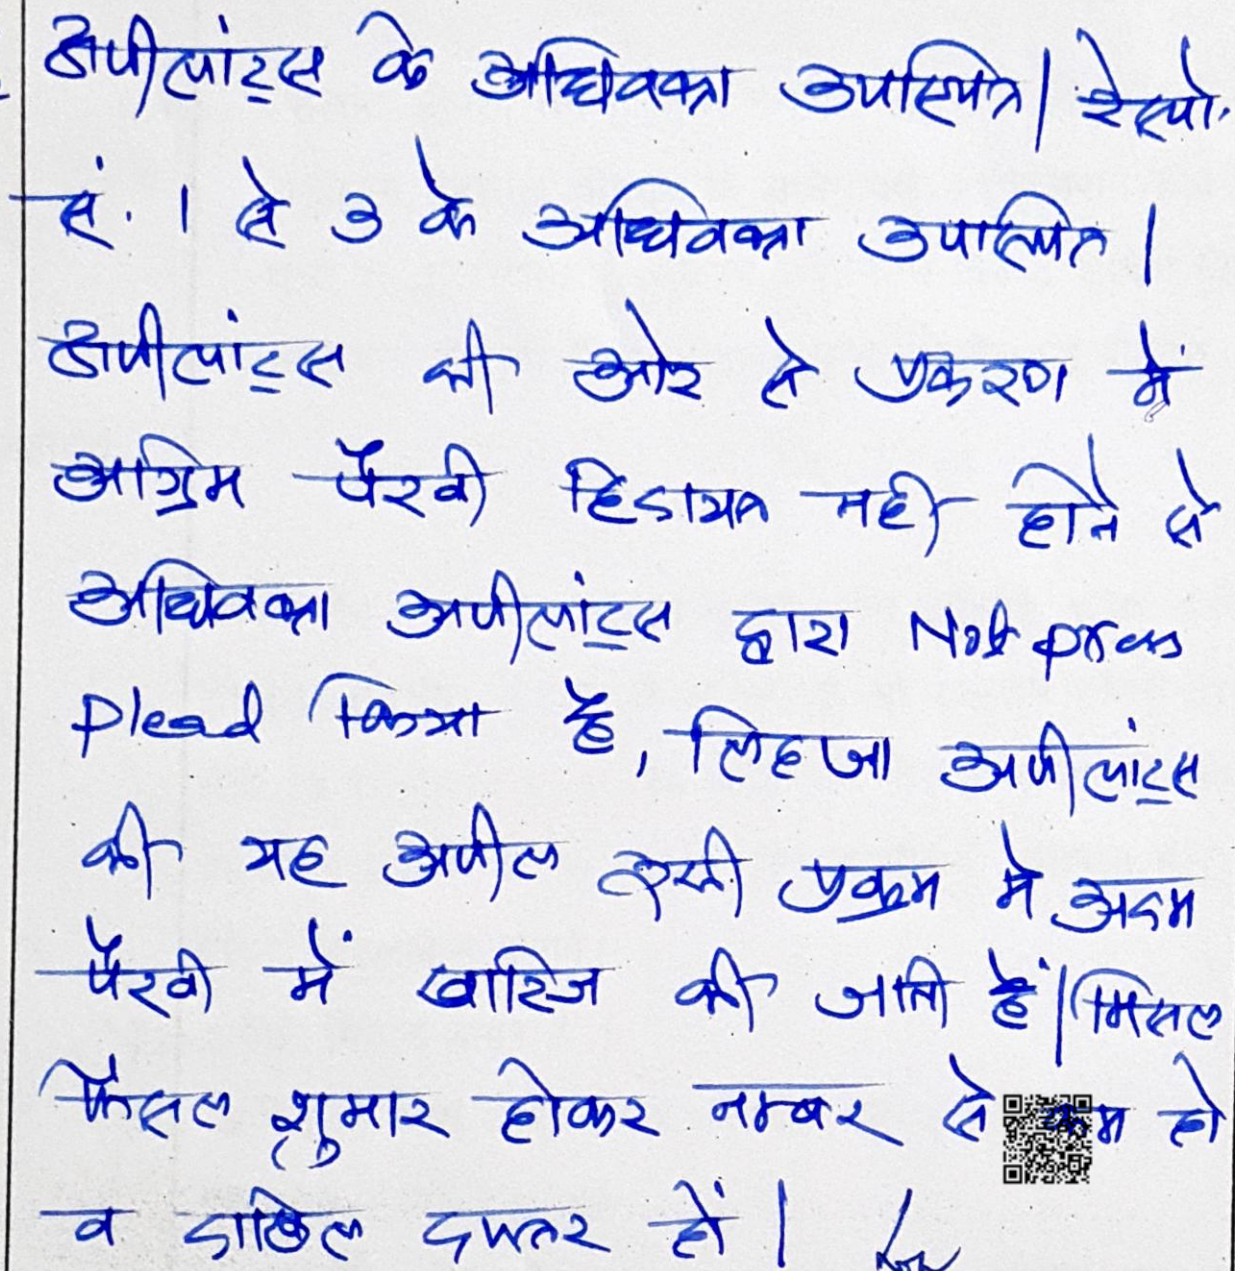 अपीलांट्स के अधिवक्ता उपस्थित। रेस्पो.
सं. 1 से 3 के अधिवक्ता उपस्थित।
अपीलांट्स की ओर से प्रकरण में
अग्रिम पैरवी हिदायत नही होने से
अधिवक्ता अपीलांट्स द्वारा Not press
Plead किया है, लिहजा अपीलांट्स
की यह अपील इसी प्रक्रम मे अदम
पैरवी में खारिज की जाती हैं। मिसल
फैसल शुमार होकर नम्बर से कम हो
व दाखिल दफ्तर हों।